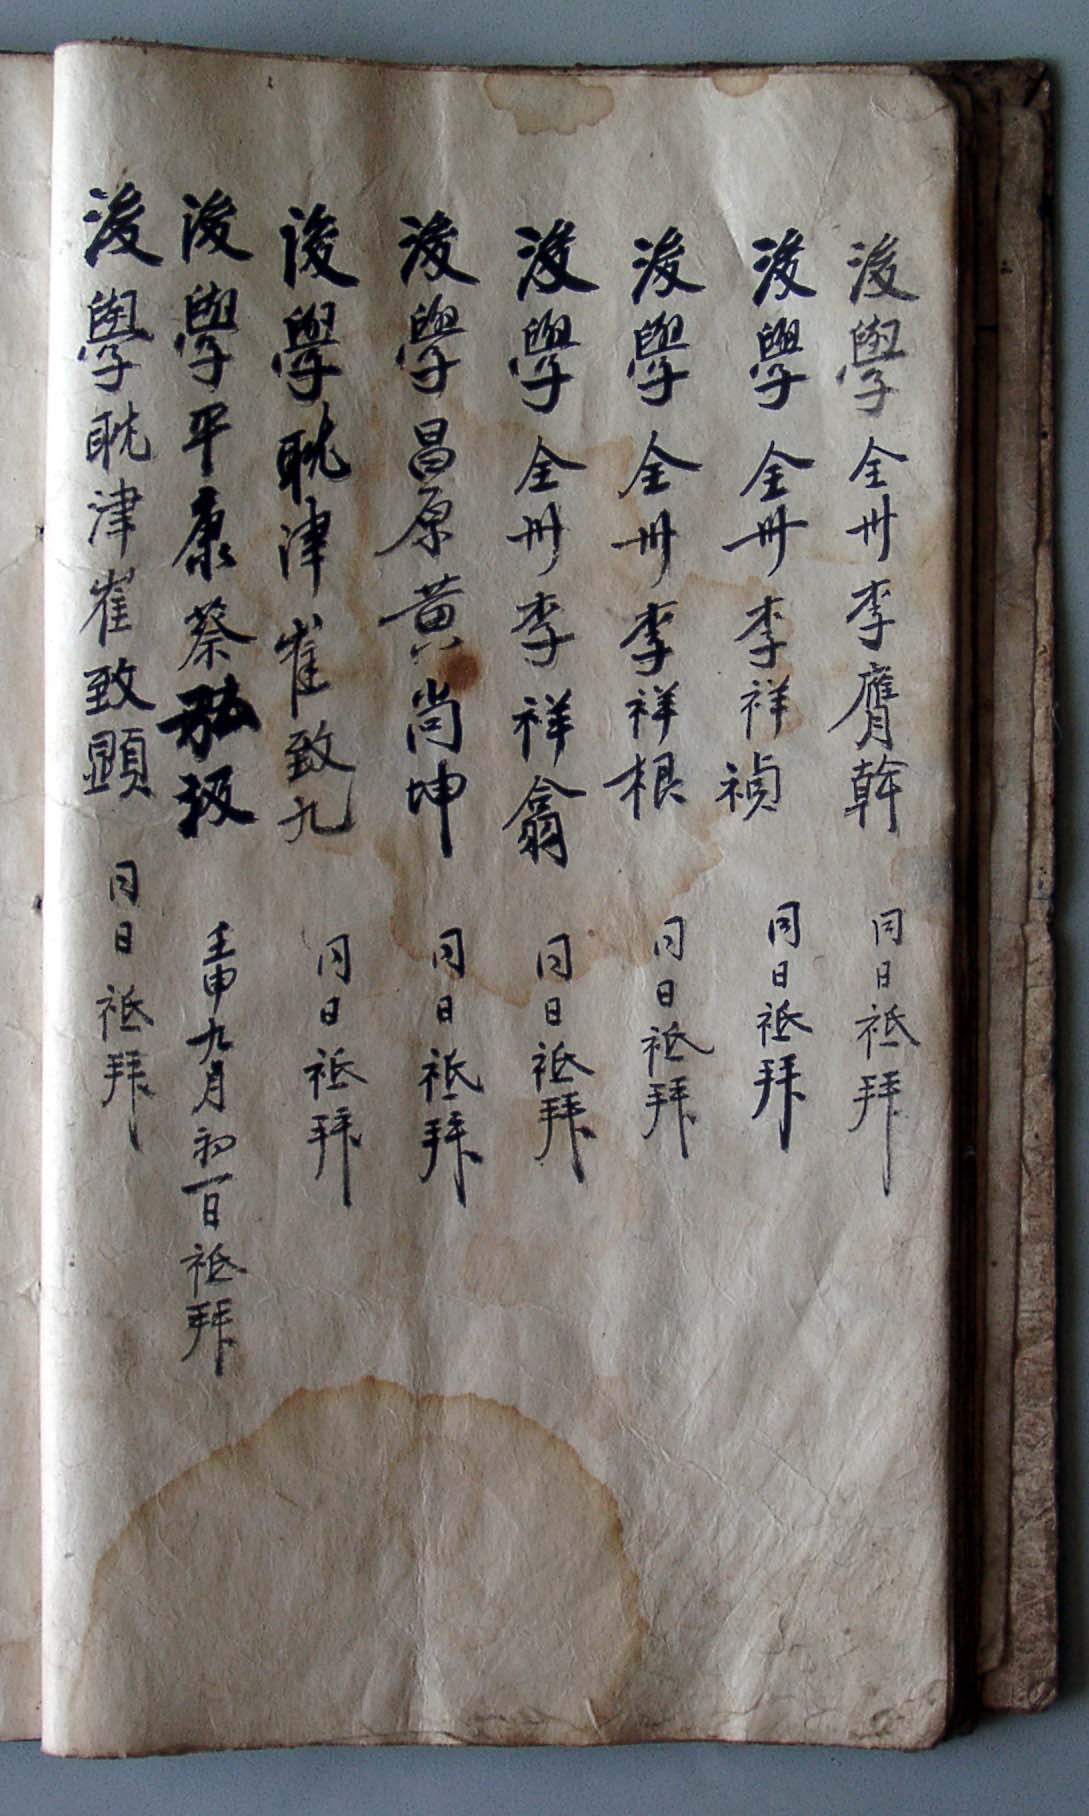 後學全州李膺幹 同日祗拜
後學全州李祥禎 同日祗拜
後學全州李祥根 同日祗拜
後學全州李祥翕 同日祗拜
後學昌原黃尚坤 同日祗拜
後學耽津崔致九 同日祗拜
後學平康蔡弘級 壬申九月初一日祗拜
後學耽津崔致顕 同日祗拜